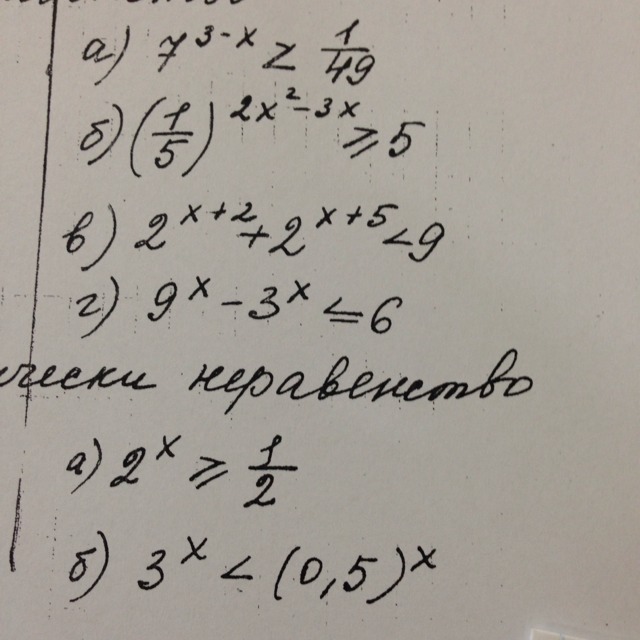 а) 7^{3-x} ≥ 1/49
б) (1/5)^{2x²-3x} ≥ 5
в) 2^{x+2} + 2^{x+5} < 9
г) 9^x - 3^x ≤ 6
чески неравенство
а) 2^x ≥ 1/2
б) 3^x < (0,5)^x